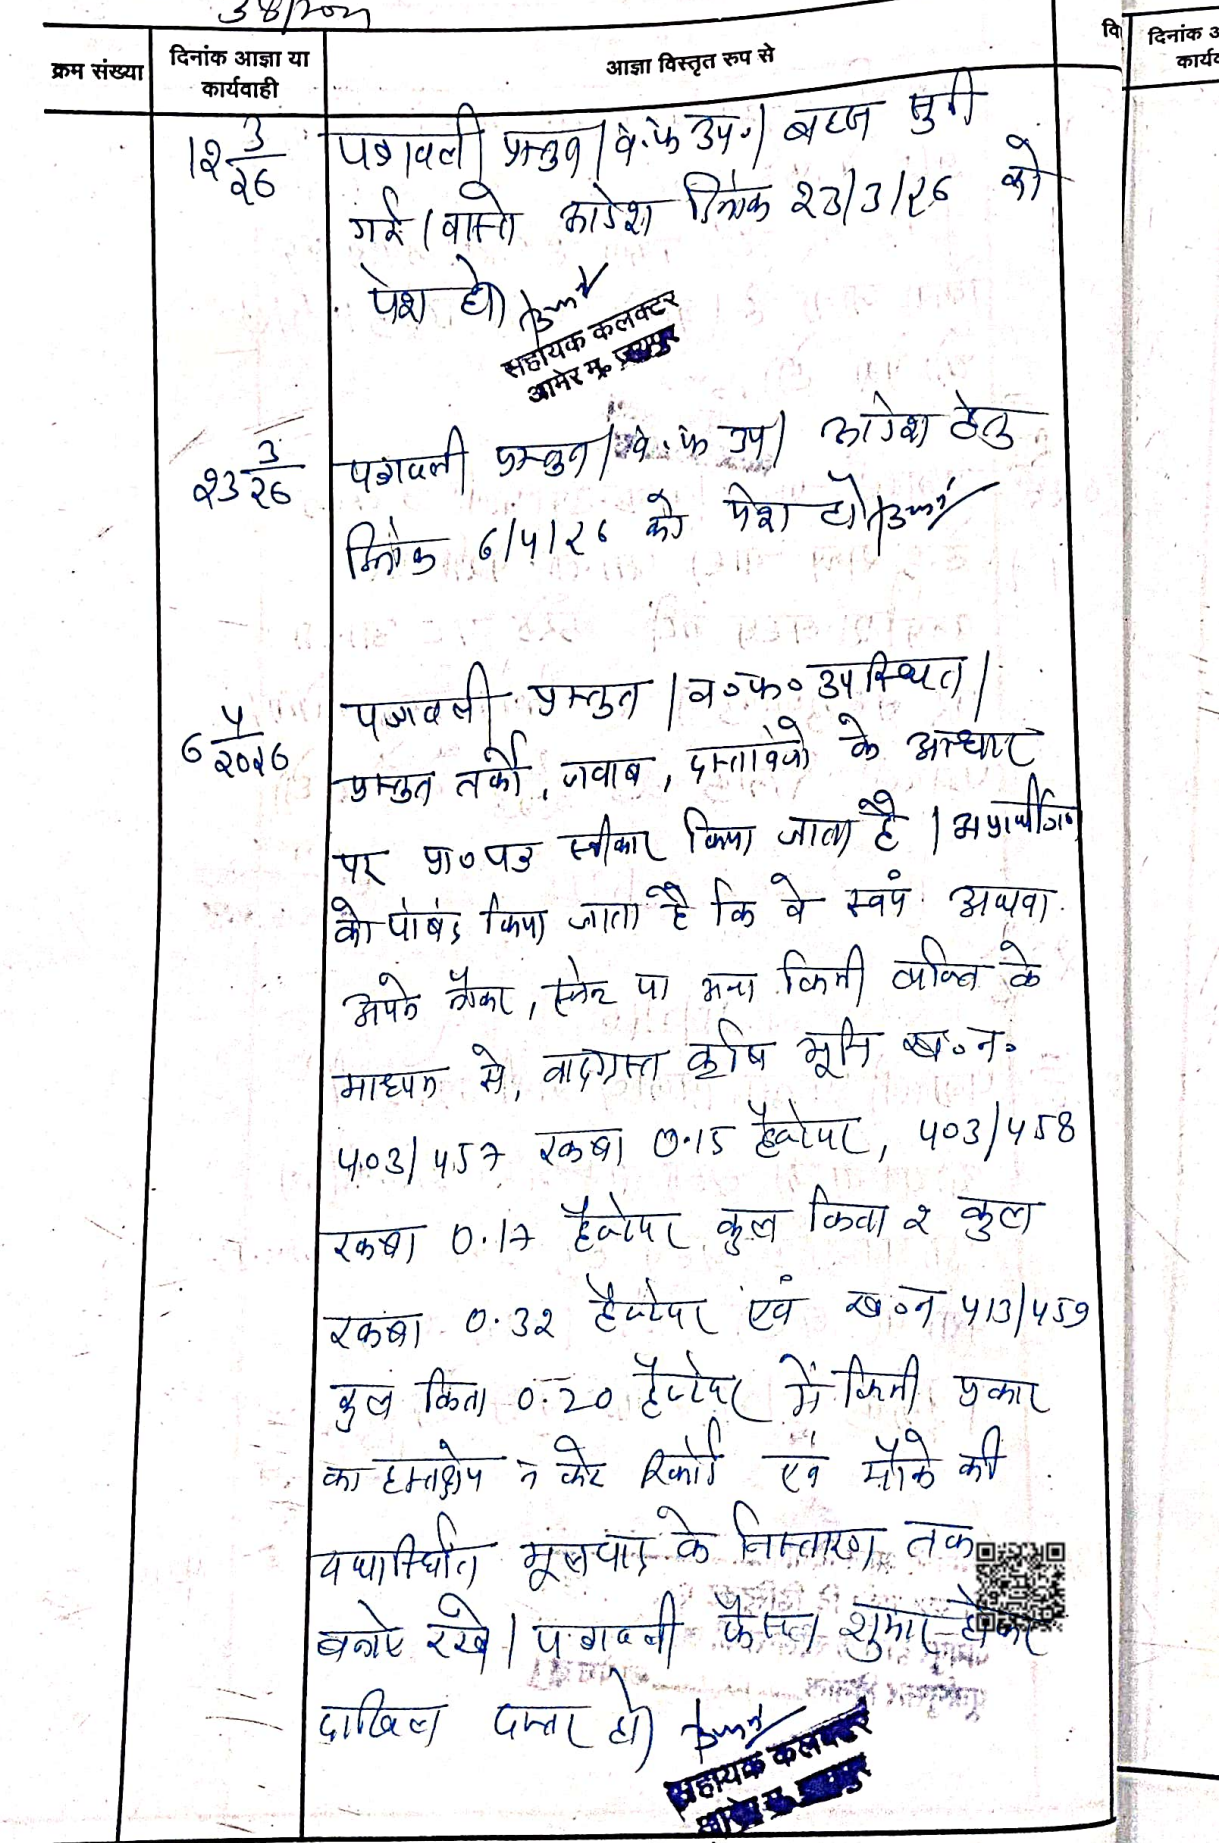 38/2021
क्रम संख्या
दिनांक आज्ञा या
कार्यवाही
आज्ञा विस्तृत रुप से
वि
दिनांक
12 3/26
पत्रावली प्रस्तुत। व.फ. उप.। बहस सुनी
गई। वास्ते आदेश दिनांक 23/3/26 को
पेश हो।
सहायक कलक्टर
आमेर मु. जयपुर
23 3/26
पत्रावली प्रस्तुत। व.फ. उप। आदेश हेतु
दिनांक 6/4/26 को पेश हो।
6 4/2026
पत्रावली प्रस्तुत। व०फ० उपस्थित।
प्रस्तुत तर्को, जवाब, दस्तावेजो के आधार
पर प्रा०पत्र स्वीकार किया जाता है। अप्रार्थीगण
को पाबंद किया जाता है कि वे स्वयं अथवा
अपने नौकर, एजेन्ट या अन्य किसी व्यक्ति के
माध्यम से, वादग्रस्त कृषि भूमि ख०न०
403/457 रकबा 0.15 हैक्टेयर, 403/458
रकबा 0.17 हैक्टेयर कुल किता 2 कुल
रकबा 0.32 हैक्टेयर एवं ख०न 413/459
कुल किता 0.20 हैक्टेयर में किसी प्रकार
का हस्तक्षेप न करे रिकॉर्ड एवं मौके की
यथास्थिति मूलवाद के निस्तारण तक
बनाए रखे। पत्रावली फैसल शुमार होकर
दाखिल दफ्तर हो।
सहायक कलक्टर
आमेर मु. जयपुर